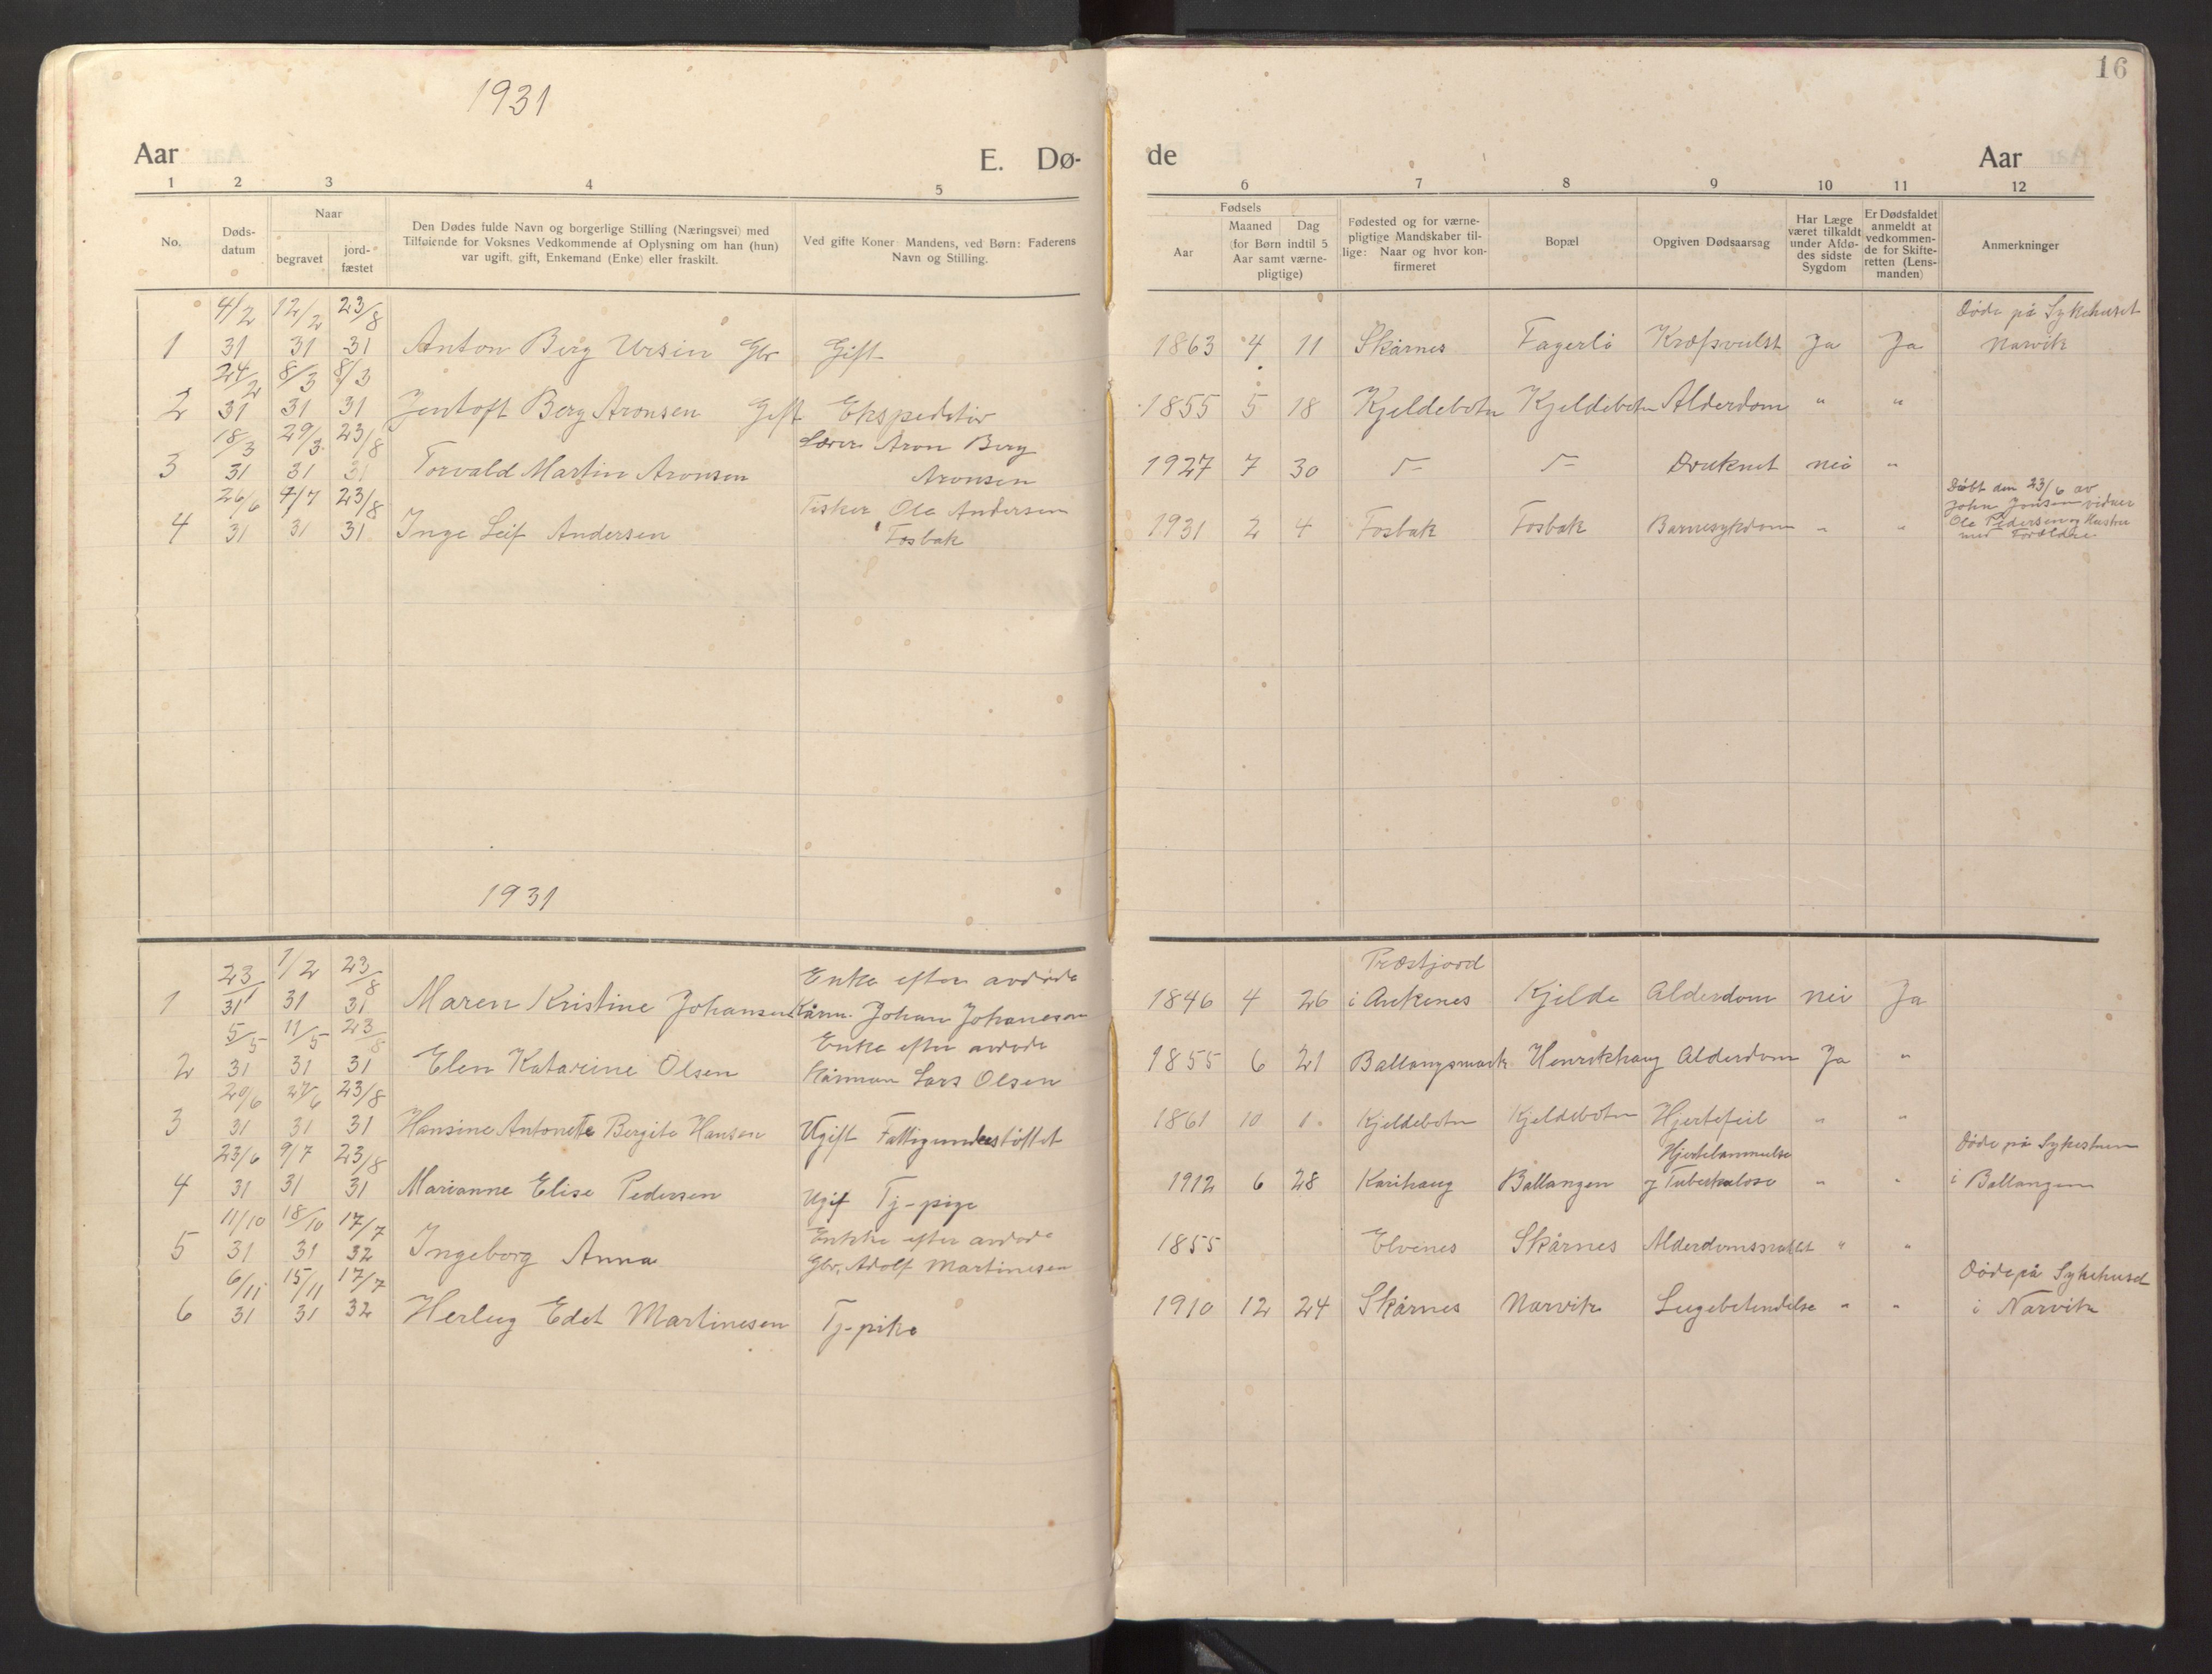 1931
16
Aar E. Dø- de Aar
1 2 3 4 5 6 7 8 9 10 11 12
No.
Døds-
datum
Naar
begravet
jord-
fæstet
Den Dødes fulde Navn og borgerlige Stilling (Næringsvei) med
Tilføiende for Voksnes Vedkommende af Oplysning om han (hun)
var ugift, gift, Enkemand (Enke) eller fraskilt.
Ved gifte Koner: Mandens, ved Børn: Faderens
Navn og Stilling.
Fødsels
Aar
Maaned Dag
(for Børn indtil 5
Aar samt værne-
pligtige)
Fødested og for værne-
pligtige Mandskaber til-
lige: Naar og hvor kon-
firmeret
Bopæl
Opgiven Dødsaarsag
Har Læge
været tilkaldt
under Afdø-
des sidste
Sygdom
Er Dødsfaldet
anmeldt at
vedkommen-
de for Skifte-
retten (Lens-
manden)
Anmerkninger
4/2 12/2 23/8 Døde på Sykehuset
1 31 31 31 Anton Berg Ursin Gbr Gift 1863 4 11 Skårnes Fagerli Kræfsvulst Ja Ja Narvik
24/2 8/3 8/3
2 31 31 31 Jentoft Berg Aronsen Gift Ekspeditør 1855 5 18 Kjeldebotn Kjeldebotn Alderdom " "
18/3 29/3 23/8 Lærer Aron Berg
3 31 31 31 Torvald Martin Aronsen Aronsen 1927 7 30 Druknet nei "
26/6 9/7 23/8 Fisker Ole Andersen Døbt den 23/6 av
4 31 31 31 Inge Leif Andersen Fosbak 1931 2 4 Fosbak Fosbak Barnesykdom " " John Jonsen vidner
Ole Pedersen og Hustru
med Forældre
1931
23/1 1/2 23/8 Enke efter avdøde Præstjord
1 31 31 31 Maren Kristine Johansen Kårm. Johan Johanesen 1846 4 26 i Ankenes Kjelde Alderdom nei Ja
5/5 11/5 23/8 Enke efter avdøde
2 31 31 31 Elen Katarine Olsen Kårman Lars Olsen 1855 6 21 Ballangsmark Henrikhaug Alderdom Ja "
20/6 27/6 23/8
3 31 31 31 Hansine Antonette Bergite Hansen Ugift Fattigunderstøttet 1861 10 1 Kjeldebotn Kjeldebotn Hjertefeil " "
23/6 9/7 23/8 Hjertelammelse Døde på Sykestuen
4 31 31 31 Marianne Elise Pedersen Ugif Tj-pige 1912 6 28 Karihaug Ballangen og Tuberkulose " " i Ballangen
11/10 18/10 17/7 Enkke efter avdøde
5 31 31 32 Ingeborg Anna Gbr, Adolf Martinesen 1855 Elvenes Skårnes Alderdomssvakhet " "
6/11 15/11 17/7 Døde på Sykehuset
6 31 31 32 Herlug Edit Martinesen Tj-pike 1910 12 24 Skårnes Narvik Lugebetendelse " " i Narvik